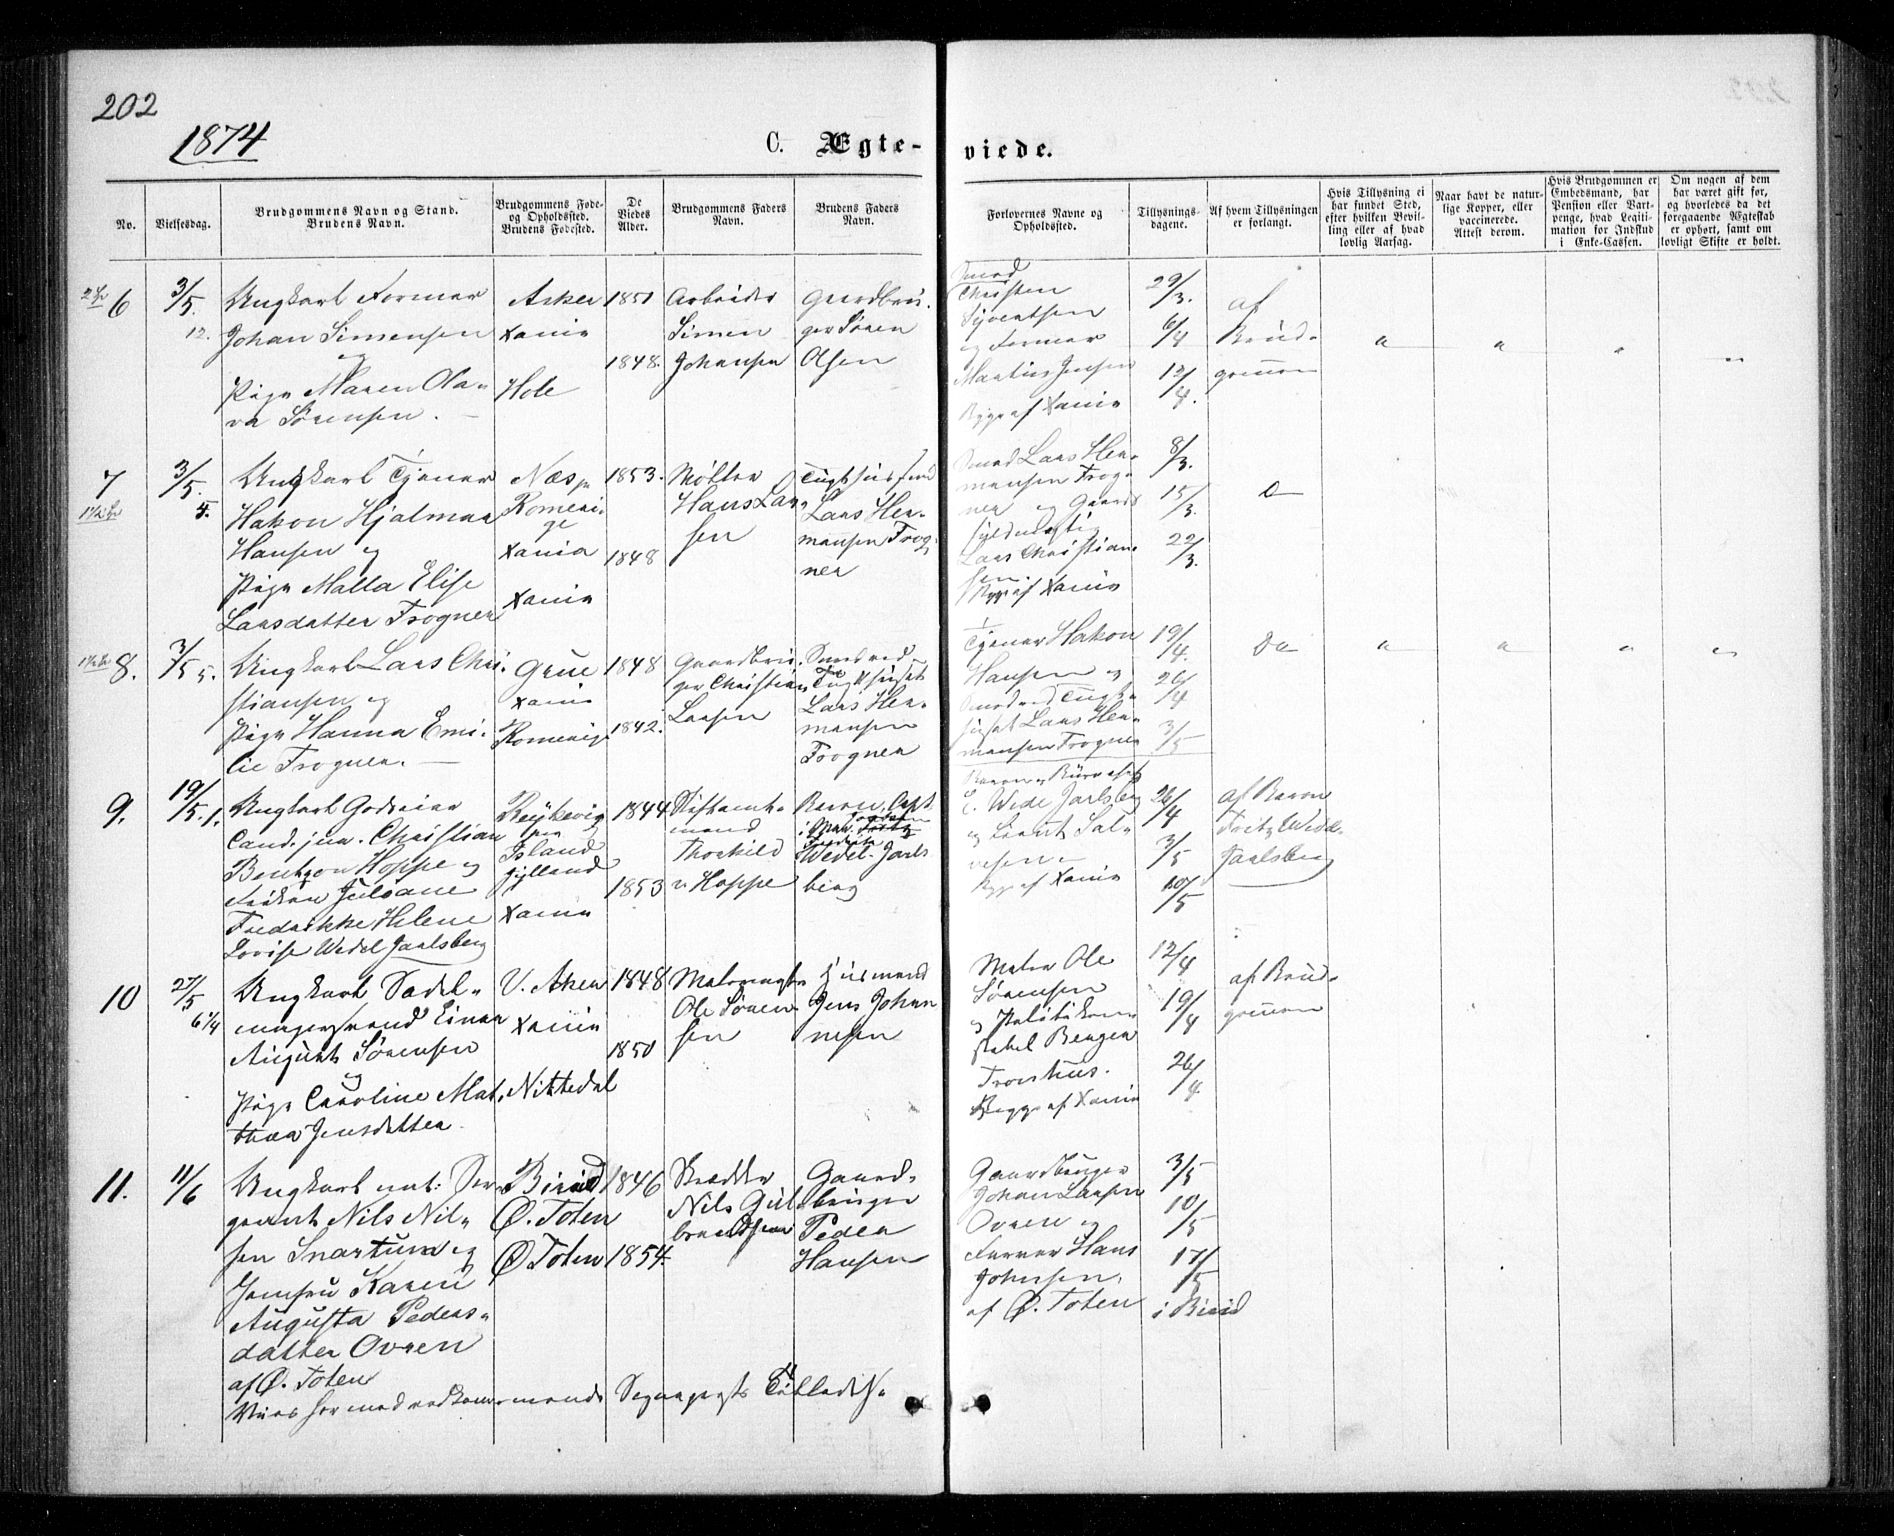 202
1874
C. Ægte-
viede.
No.
Vielsesdag.
Brudgommens Navn og Stand.
Brudens Navn.
Brudgommens Føde-
og Opholdssted.
Brudens Fødested.
De
Viedes
Alder.
Brudgommens Faders
Navn.
Brudens Faders
Navn.
Forlovernes Navne og
Opholdssted.
Tillysnings-
dagene.
Af hvem Tillysningen
er forlangt.
Hvis Tillysning ei
har fundet Sted,
efter hvilken Bevil-
ling eller af hvad
lovlig Aarsag.
Naar havt de natur-
lige Kopper, eller
vaccinerede.
Attest derom.
Hvis Brudgommen er
Embedsmand, har
Pension eller Vart-
penge, hvad Legiti-
mation for Indskud
i Enke-Cassen.
Om nogen af dem
har været gift før,
og hvorledes da det
foregaaende Ægteskab
er ophørt, samt om
lovligt Skifte er holdt.
6
3/5.
12.
Ungkarl Formar
Johan Simensen
og
Pige Maren Ola-
va Sørensen.
Asker
Xania
Hole
1851
1848.
Arbeider
Simen
Johansen
Gaardbru-
ger Søren
Olsen
Smed
Christen
Syvertsen
og Formar
Martius Jensen
Begge af Xania
29/3.
6/4
12/4.
af
Brud-
gommen
7
3/5.
5.
Ungkarl Tjener
Hakon Hjalmar
Hansen og
Pige Malla Elise
Larsdatter Frogner
Næs på
Romeri-
ge
Xania
Xania
1853.
1848
Møller
Hans Lar-
sen
Lars Her-
mansen Frog-
ner
Smed Lars Her-
mansen Frog-
ner og Gaards-
fuldmægtig
Lars Christian-
sen
Begge af Xania
8/3.
15/3.
22/3.
8.
3/5
5.
Ungkarl Lars Chri-
stiansen og
Pige Hanna Emi-
lie Frogner.
Grue
Xania
Romerige
1848
1842.
Gaardbru-
ger Christian
Larsen
Smed ved
Tugthuset
Lars Her-
mansen
Frogner
Tjener Hakon
Hansen og
Smed ved Tugt-
huset Lars Her-
mansen Frogner
19/4.
26/4
3/5
Do
9.
19/5.
1.
Ungkarl Godseier
Cand. jur. Christian
Bentzon Hoppe og
Frøken Juliane
Fredrikke Helene
Lovise Wedel Jarlsberg
Reykevig
paa
Island
Jylland
Xania
1844
1853
Stiftamt-
mand
Thorkild
Hoppe
Baron, Capt.
i Mar.
Wedel-Jarls
berg
Wedel Jarlsberg
og
Begge af Xania
26/4
3/5
10/5
af Baron
Fritz Wedel
Jarlsberg
10
27/5
6 1/4
Ungkarl Sadel-
magersvend Einar
August Sørensen
og
Pige Caroline Mat-
thea Jensdatter.
V. Aker
Xania
Nittedal
1848
1850
Malermester
Ole Søren-
sen
Husmand
Jens Johan
nesen
Maler Ole
Sørensen
og Politikon-
stabel Bergen
Froeshus.
Begge af Xania
12/4
19/4
26/4
af Brud-
gommen
11.
11/6
Ungkarl nat: Ser-
geant Nils Nil-
sen Snartum og
Jomfru Karen
Augusta Peders-
datter Ovren
af Ø. Toten
Birid
Ø. Toten
Ø Toten
1846
1854.
Skrædder
Nils Gul
brandsen
Gaard-
bruger
Peder
Hansen
Gaardbruger
Johan Larsen
Ovren og
Farver Hans
Johnsen,
af Ø. Toten
3/5
10/5
17/5
i Birid
Vies her med vedkommende Sogneprests Tilladelse